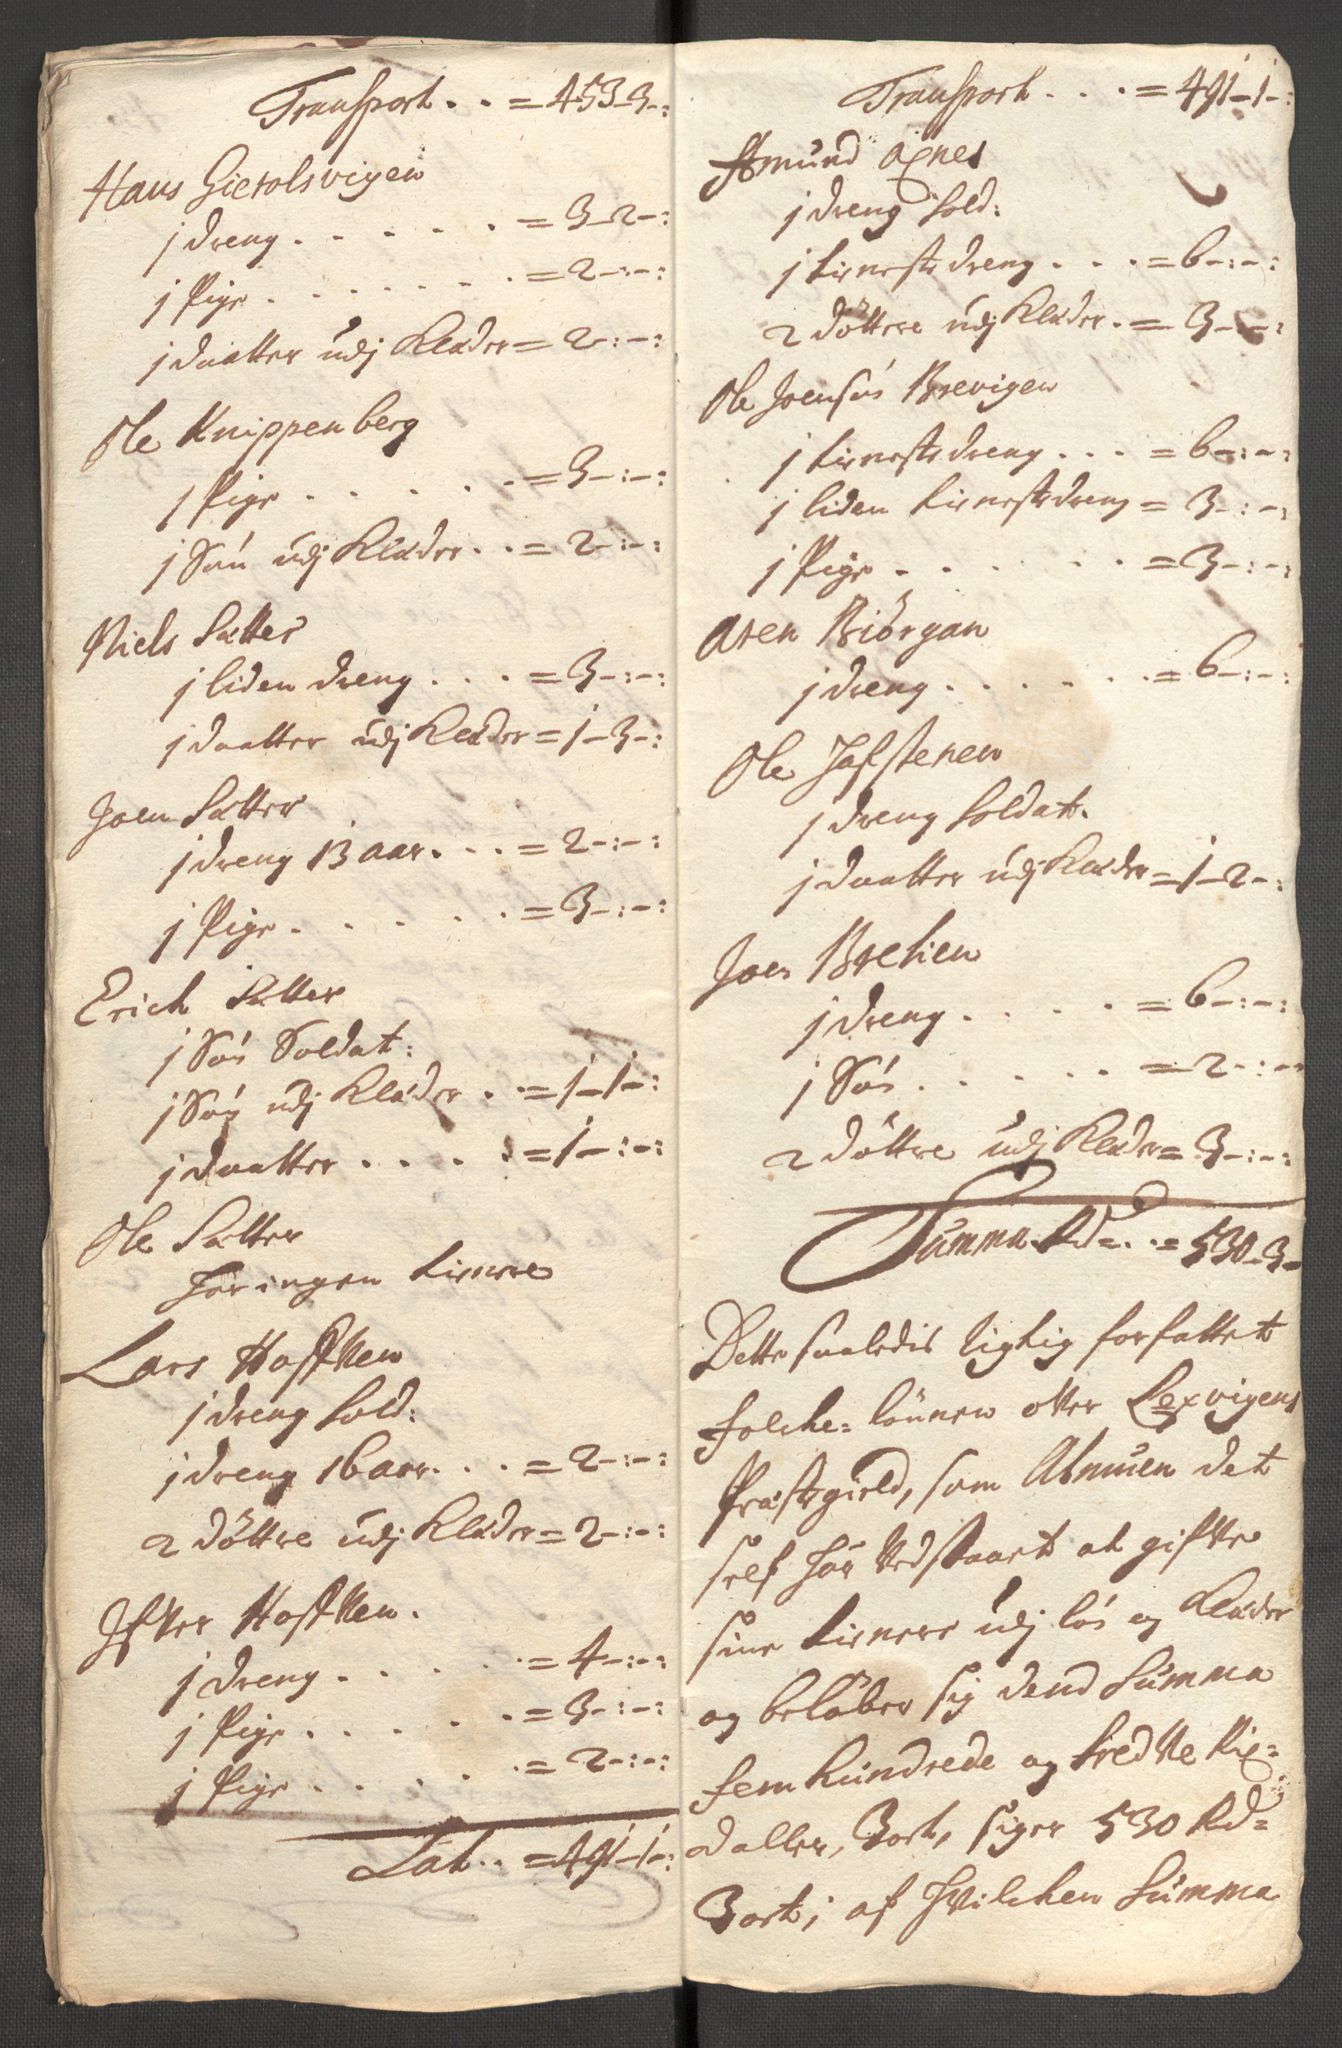 Transport . . = 453-3-:
Hans Gierolsvigen
j dreng . . . . . = 3-2-:
j Pige . . . . . . = 2-:-:
j daatter udj Klæder = 2-:-:
Ole Knippenberg
j Pige . . . . . = 3-:-:
j Søn udj Klæder . . = 2-:-:
Niels Sætter
j liden dreng . . . = 3-:-:
j daatter udj Klæder = 1-3-:
Joen Sætter
j dreng 13 aar . . . = 2-:-:
j Pige . . . . . = 3-:-:
Erich Sætter
j Søn Soldat:
j Søn udj Klæder . . = 1-1-:
j daatter . . . . = 1-:-:
Ole Sætter
Har ingen tienere
Lars Hostken
j dreng Sold:
j dreng 16 aar . . . = 2-:-:
2 døttre udj Klæder = 2-:-:
Ifver Hostken.
j dreng . . . . . = 4-:-:
j Pige . . . . . = 3-:-:
j Pige . . . . . = 2-:-:
Lat . . = 491-1-:
Transport . . . = 491-1-:
Amund Axnes
j dreng Sold:
j tienestedreng . . . = 6-:-:
2 døttere udj Klæder . = 3-:-:
Ole Joensøn Brevigen
j tienestedreng . . . = 6-:-:
j liden tienestedreng = 3-:-:
j Pige . . . . . . = 3-:-:
Aren Biørgan
j dreng . . . . . . = 6-:-:
Ole Hafstenen
j dreng Soldat.
j daatter udj Klæder = 1-2-:
Joen Brehien
j dreng . . . . = 6-:-:
j Søn . . . . . = 2-:-:
2 døttre udj Klæder = 3-:-:
Summa Rd = . . = 530-3-
Dette saaledis rigtig forfattet
folche-lønnen ofver Lexvigens
Præstegield, som Almuen det
self har tilstaaet at gifve
sine tienere udj løn og Klæder
og beløber sig dend Summa
fem hundrede og tredive Rix-
daller, 3 ort, siger 530 Rd-
3 ort; af hvilchen Summa